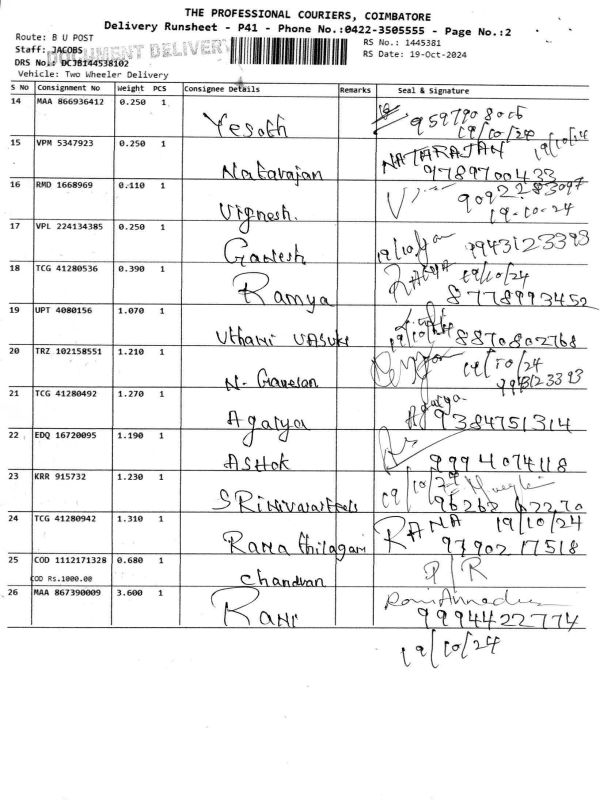 THE PROFESSIONAL COURIERS, COIMBATORE
Delivery Runsheet - P41 - Phone No.:0422-3505555 - Page No.:2
Route: B U POST
RS No.: 1445381
Staff: JACOBS
DOCUMENT DELIVERY
RS Date: 19-Oct-2024
DRS No.: DCJB144538102
Vehicle: Two Wheeler Delivery
S No Consignment No Weight PCS Consignee Details Remarks Seal & Signature
14 MAA 866936412 0.250 1 Yesoth 9597908006
19/10/24
15 VPM 5347923 0.250 1 Natarajan NATARAJAN 19/10/24
9789700433
16 RMD 1668969 0.110 1 Vignesh. 9092283097
19-10-24
17 VPL 224134385 0.250 1 Ganesh 19/10/ 9943123393
18 TCG 41280536 0.390 1 Ramya RAMYA 19/10/24
8778993452
19 UPT 4080156 1.070 1 Uthami VASUKI 19/10/24 8870802768
20 TRZ 102158551 1.210 1 N. Ganesan 19/10/24
9943123393
21 TCG 41280492 1.270 1 Agatya Agatya
9384751314
22 EDQ 16720095 1.190 1 AShok 9994074118
23 KRR 915732 1.230 1 19/10/24
24 TCG 41280942 1.310 1 Rana thilagam RANA 19/10/24
9790217518
25 COD 1112171328 0.680 1 chandran P/R
COD Rs.1000.00
26 MAA 867390009 3.600 1 RANI
9994422774
19/10/24